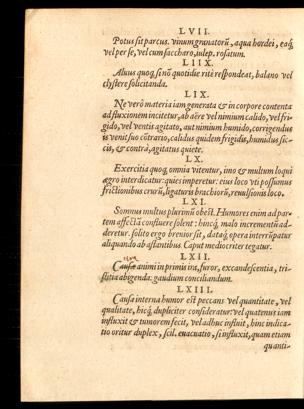 LVII.
Potus sit parcus. vinum granatorũ, aqua hordei, eaq́;
vel per se, vel cum saccharo, iulep. rosatum.
LIIX.
Aluus quoq; si nõ quotidie ritè respondeat, balano vel
clystere solicitanda.
LIX.
Ne verò materia iam generata & in corpore contenta
ad fluxionem incitetur, ab aëre vel nimium calido, vel fri-
gido, vel ventis agitato, aut nimium humido, corrigendus
is venit suo cõtrario, calidus quidem frigidis, humidus sic-
cis, & contrà, agitatus quiete.
LX.
Exercitia quoq; omnia vitentur, imo & multum loqui
ægro interdicatur: quies imperetur: eius loco vti possumus
frictionibus crurũ, ligaturis brachiorũ, reuulsionis loco.
LXI.
Somnus multus plurimũ obest. Humores enim ad par-
tem affectã confluere solent: hincq́; malo incrementũ ad-
deretur. solito ergo breuior sit, dataq́; opera interrũpatur
aliquando ab astantibus. Caput mediocriter tegatur.
LXII.
Causæ animi in primis ira, furor, excandescentia, tri-
stitia abigenda: gaudium conciliandum.
LXIII.
Causa interna humor est peccans vel quantitate, vel
qualitate, hicq́; dupliciter consideratur: vel quatenus iam
influxit & tumorem fecit, vel adhuc influit, hinc indica-
tio oritur duplex, scil. euacuatio, si influxit, quam etiam
quanti-